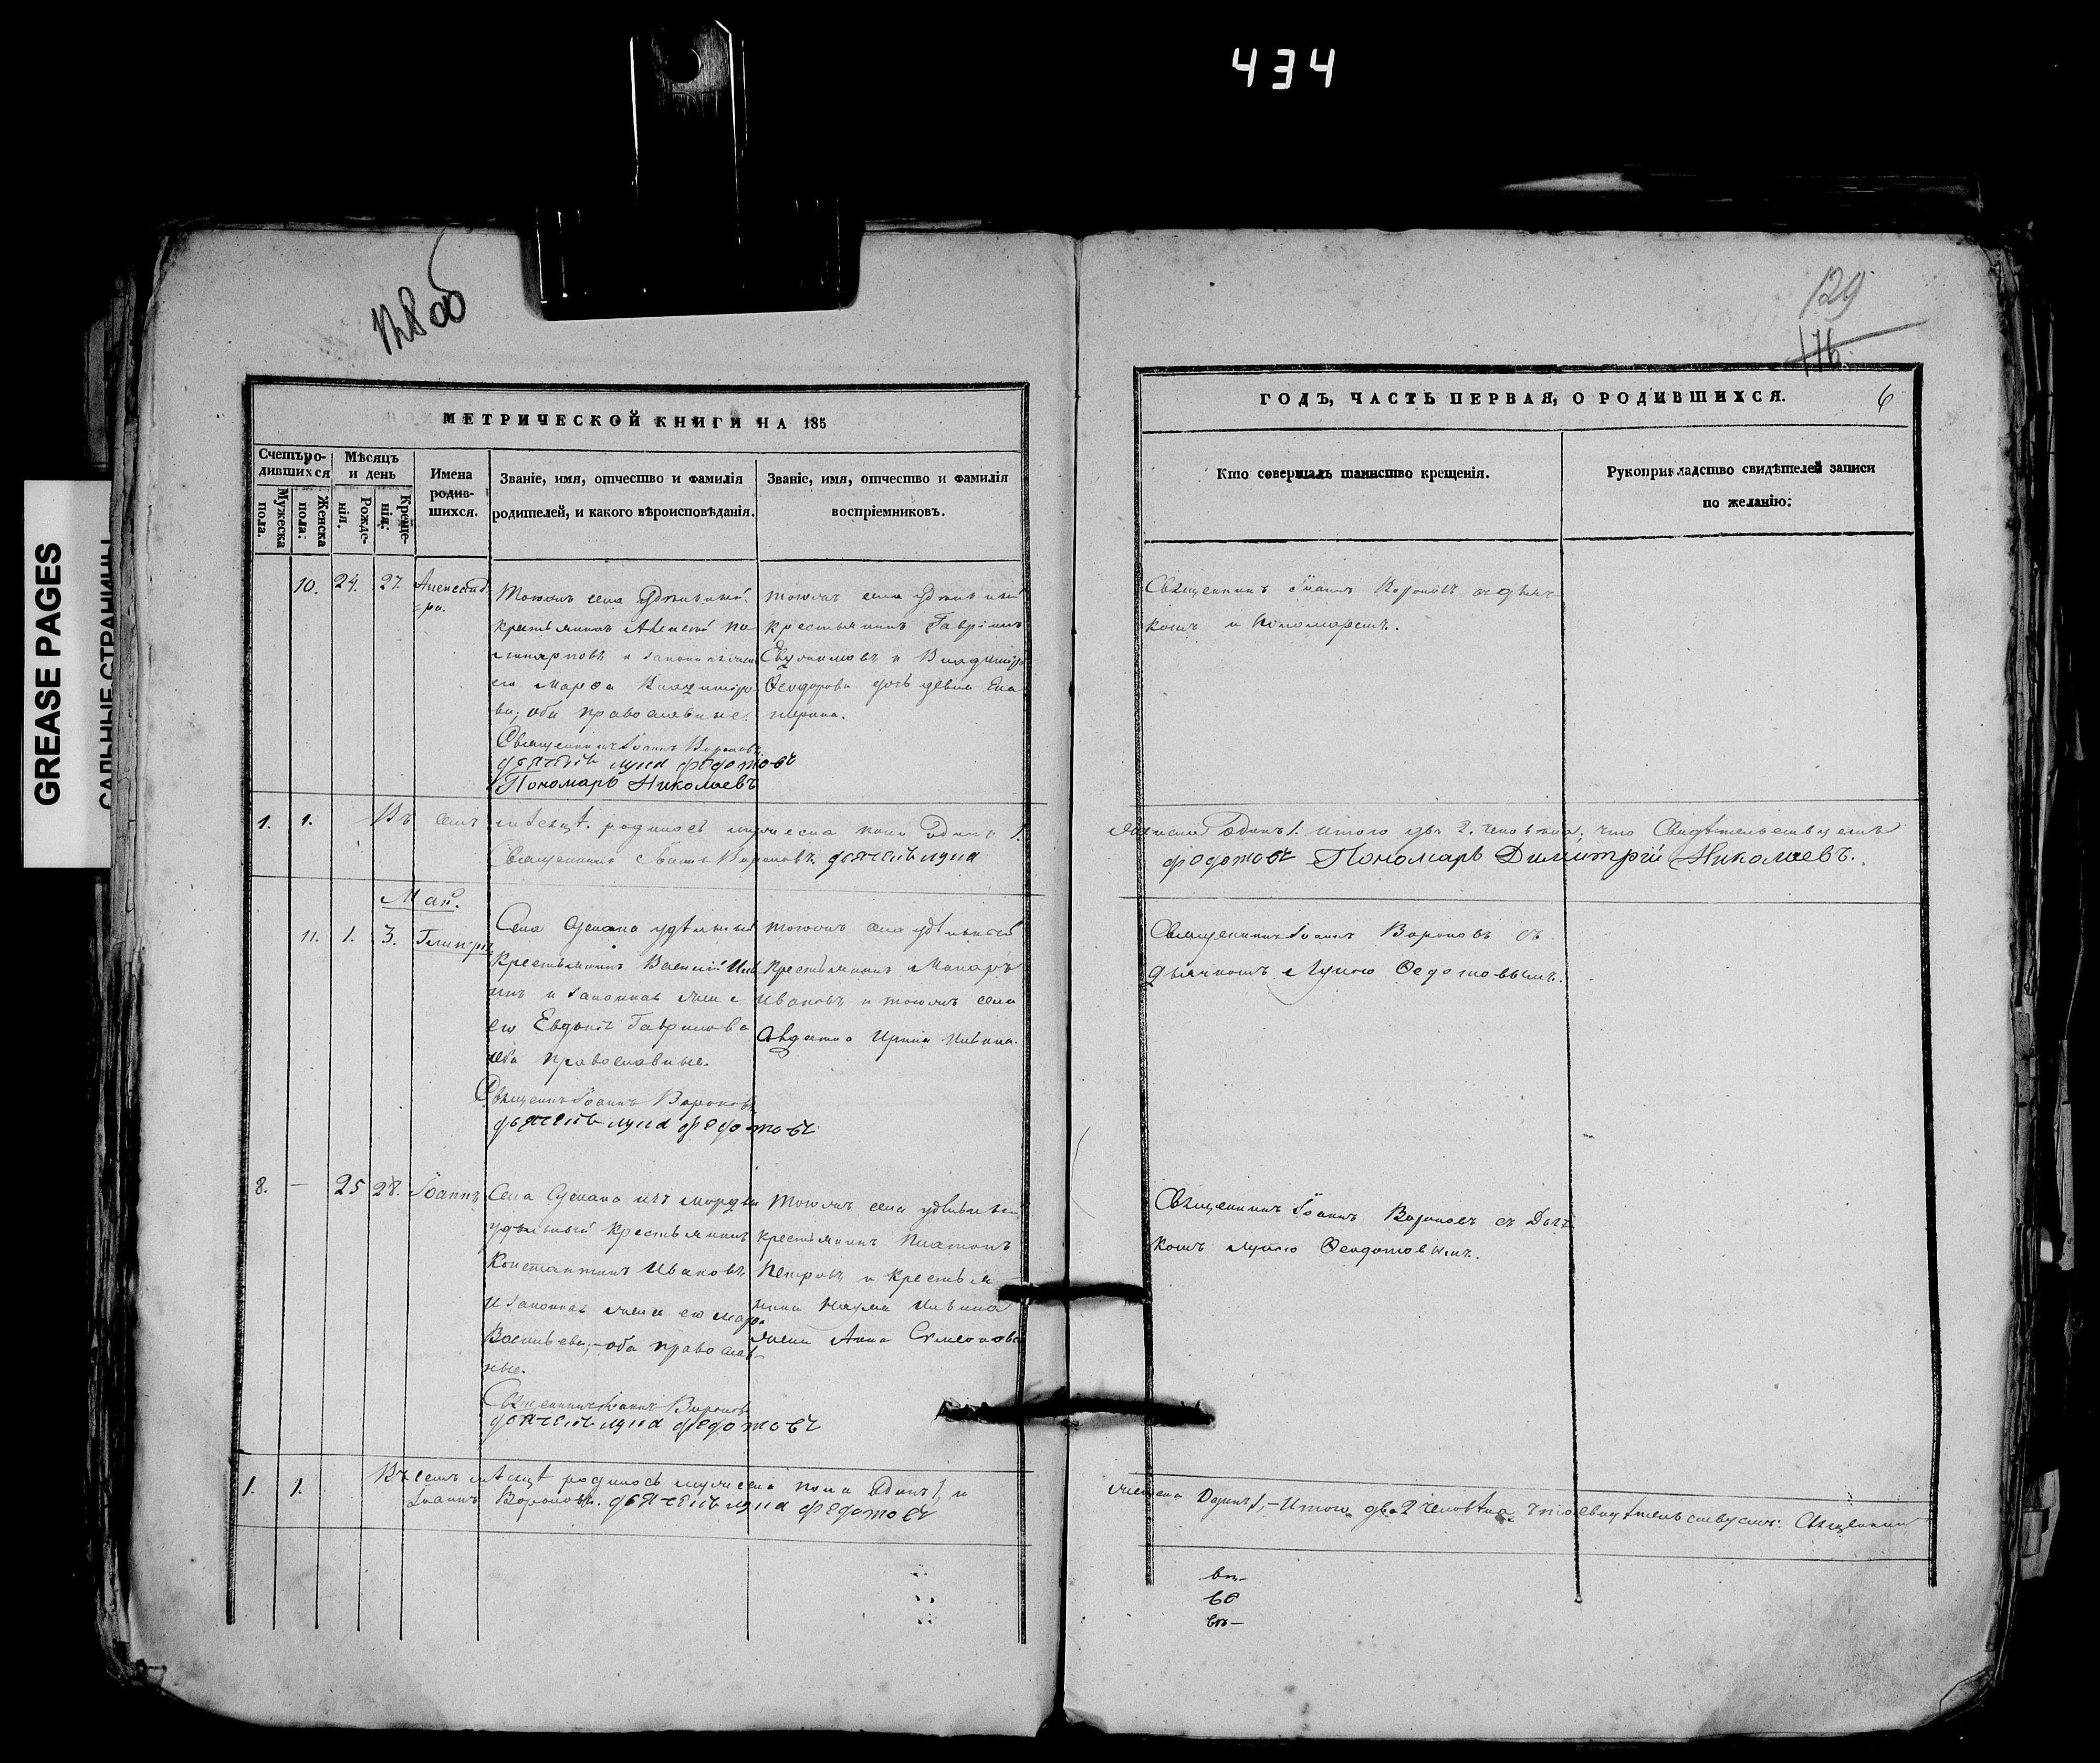 434
GREASE PAGES
САЛЬНЫЕ СТРАНИЦЫ
128 об
129
176.
МЕТРИЧЕСКОЙ КНИГИ НА 185
Счетъ ро-
дившихся
Мужеска
пола.
Женска
пола.
Мѣсяцъ
и день
Рожде-
нія.
Креще-
нія.
Имена
родив-
шихся.
Званіе, имя, отчество и фамилія
родителей, и какого вѣроисповѣданія.
Званіе, имя, отчество и фамилія
воспріемниковъ.
10. 24. 27. Александ-
ра.
Тогожъ села удѣльный
крестьянинъ Алексѣй По-
ликарповъ и законная жена
его Марѳа Владиміро-
ва; оба православные.
Священникъ Іоаннъ Вороновъ
дьячекъ лука федотовъ
Пономарь Николаевъ
тогожъ села удѣльный
крестьянинъ Гавріилъ
и Владиміра
Ѳеодорова дочь девка Ека-
терина.
1. 1. Въ семъ мѣсяцѣ родилось мужеска пола одинъ 1.
Священникъ Іоаннъ Вороновъ. дьячекъ лука
Маій.
11. 1. 3.
Села удѣльный
крестьянинъ Василій Иль-
инъ и законная жена
его Евдокія Гаврилова
оба православные.
Священникъ Іоаннъ Вороновъ
дьячекъ лука федотовъ
тогожъ села удѣльный
крестьянинъ Макаръ
Ивановъ и тогожъ села
Ирина Ильина.
8. — 25 28. Іоаннъ
Села изъ мордвы
удѣльный крестьянинъ
Константинъ Ивановъ
и законная жена его Марѳа
Васильева; оба православ-
ные.
Священникъ Іоаннъ Вороновъ
дьячекъ лука федотовъ
Тогожъ села удѣльный
крестьянинъ Платонъ
Петровъ и крестья-
нина Наума Ильина
жена Анна Семенова
1. 1. Въ семъ мѣсяцѣ родилось мужеска пола одинъ 1, и
Іоаннъ Вороновъ. дьячекъ лука федотовъ
ГОДЪ, ЧАСТЬ ПЕРВАЯ, О РОДИВШИХСЯ.
6
Кто совершалъ таинство крещенія.
Рукоприкладство свидѣтелей записи
по желанію:
Священникъ Іоаннъ Вороновъ съ дьяч-
комъ и пономаремъ.
женска одинъ 1. итого два 2. человѣка; что свидѣтельствуемъ
федотовъ Пономарь Димитрій Николаевъ.
Священникъ Іоаннъ Вороновъ съ
дьячкомъ Лукою Ѳедотовымъ.
Священникъ Іоаннъ Вороновъ съ Дьяч-
комъ Лукою Ѳеодотовымъ.
женска одинъ 1, — Итого два 2 человѣка, что свидѣтельствуемъ: Священникъ